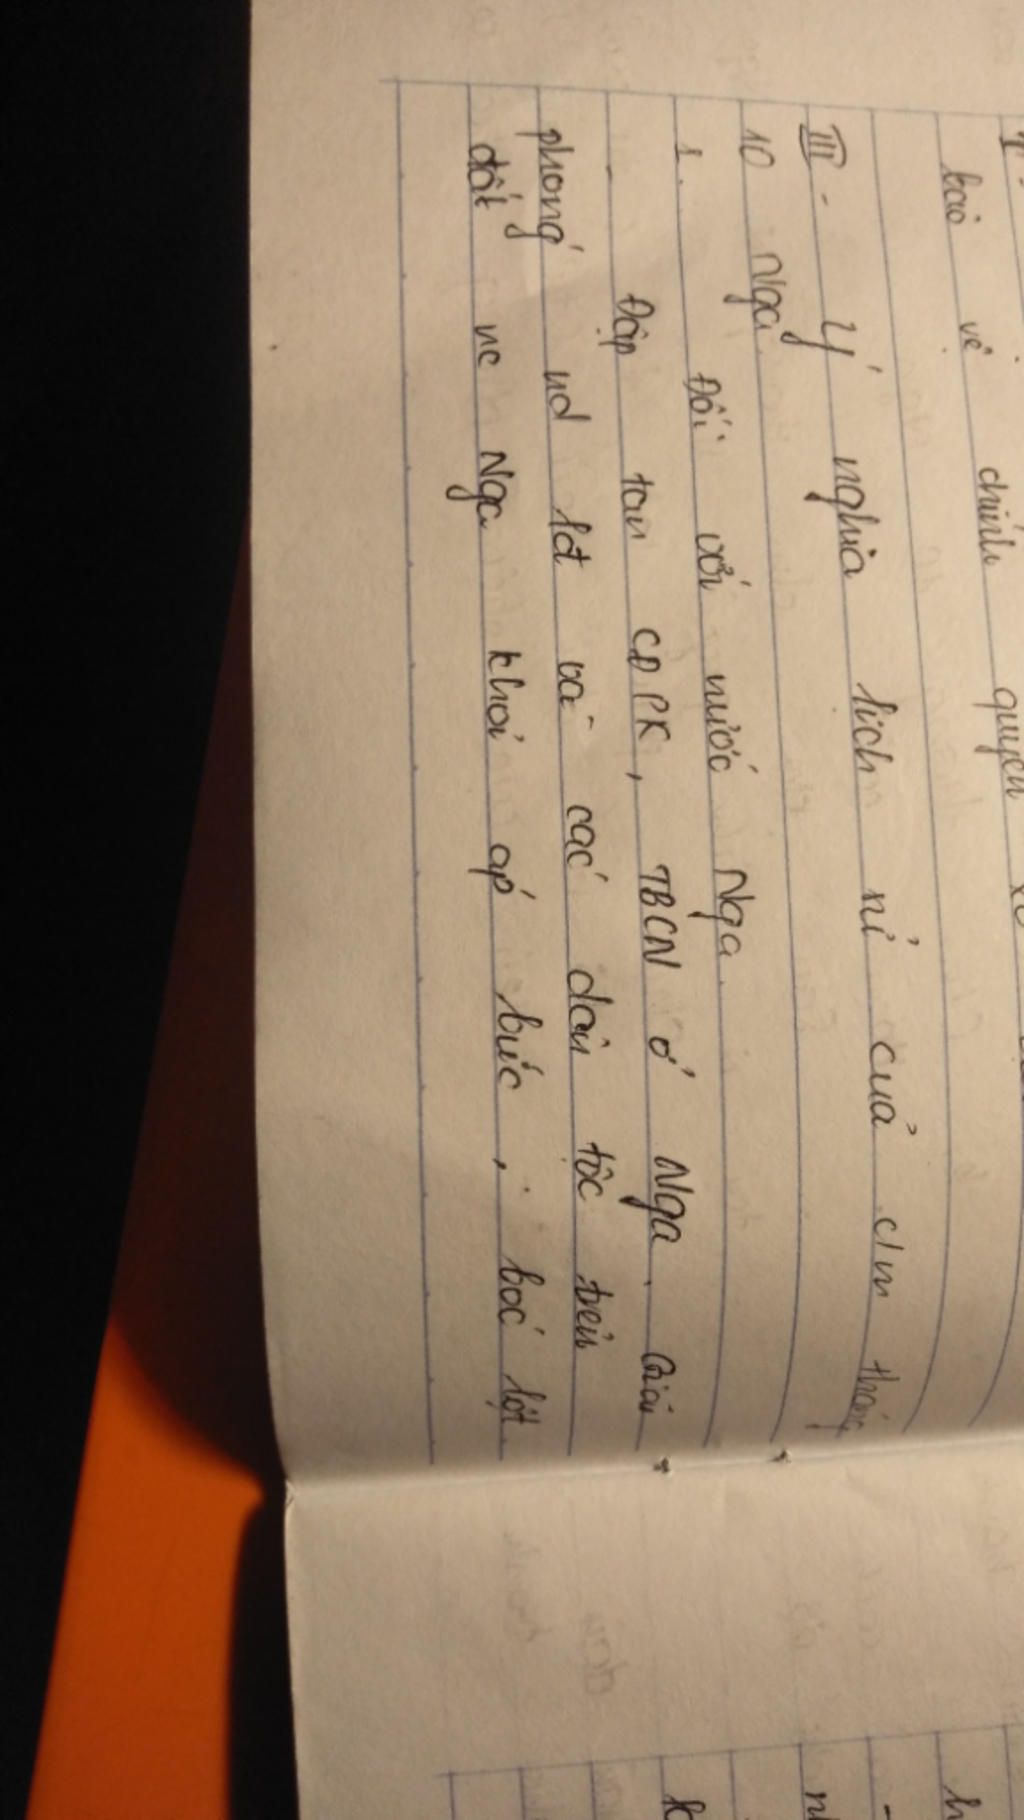 bảo vệ chính quyền
III - Ý nghĩa lịch sử của c/m tháng
10 Nga
1. Đối với nước Nga
- Đập tan CĐPK, TBCN ở Nga. Giải
phóng nd lđ và các dân tộc trên
đất nc Nga khỏi áp bức, bóc lột